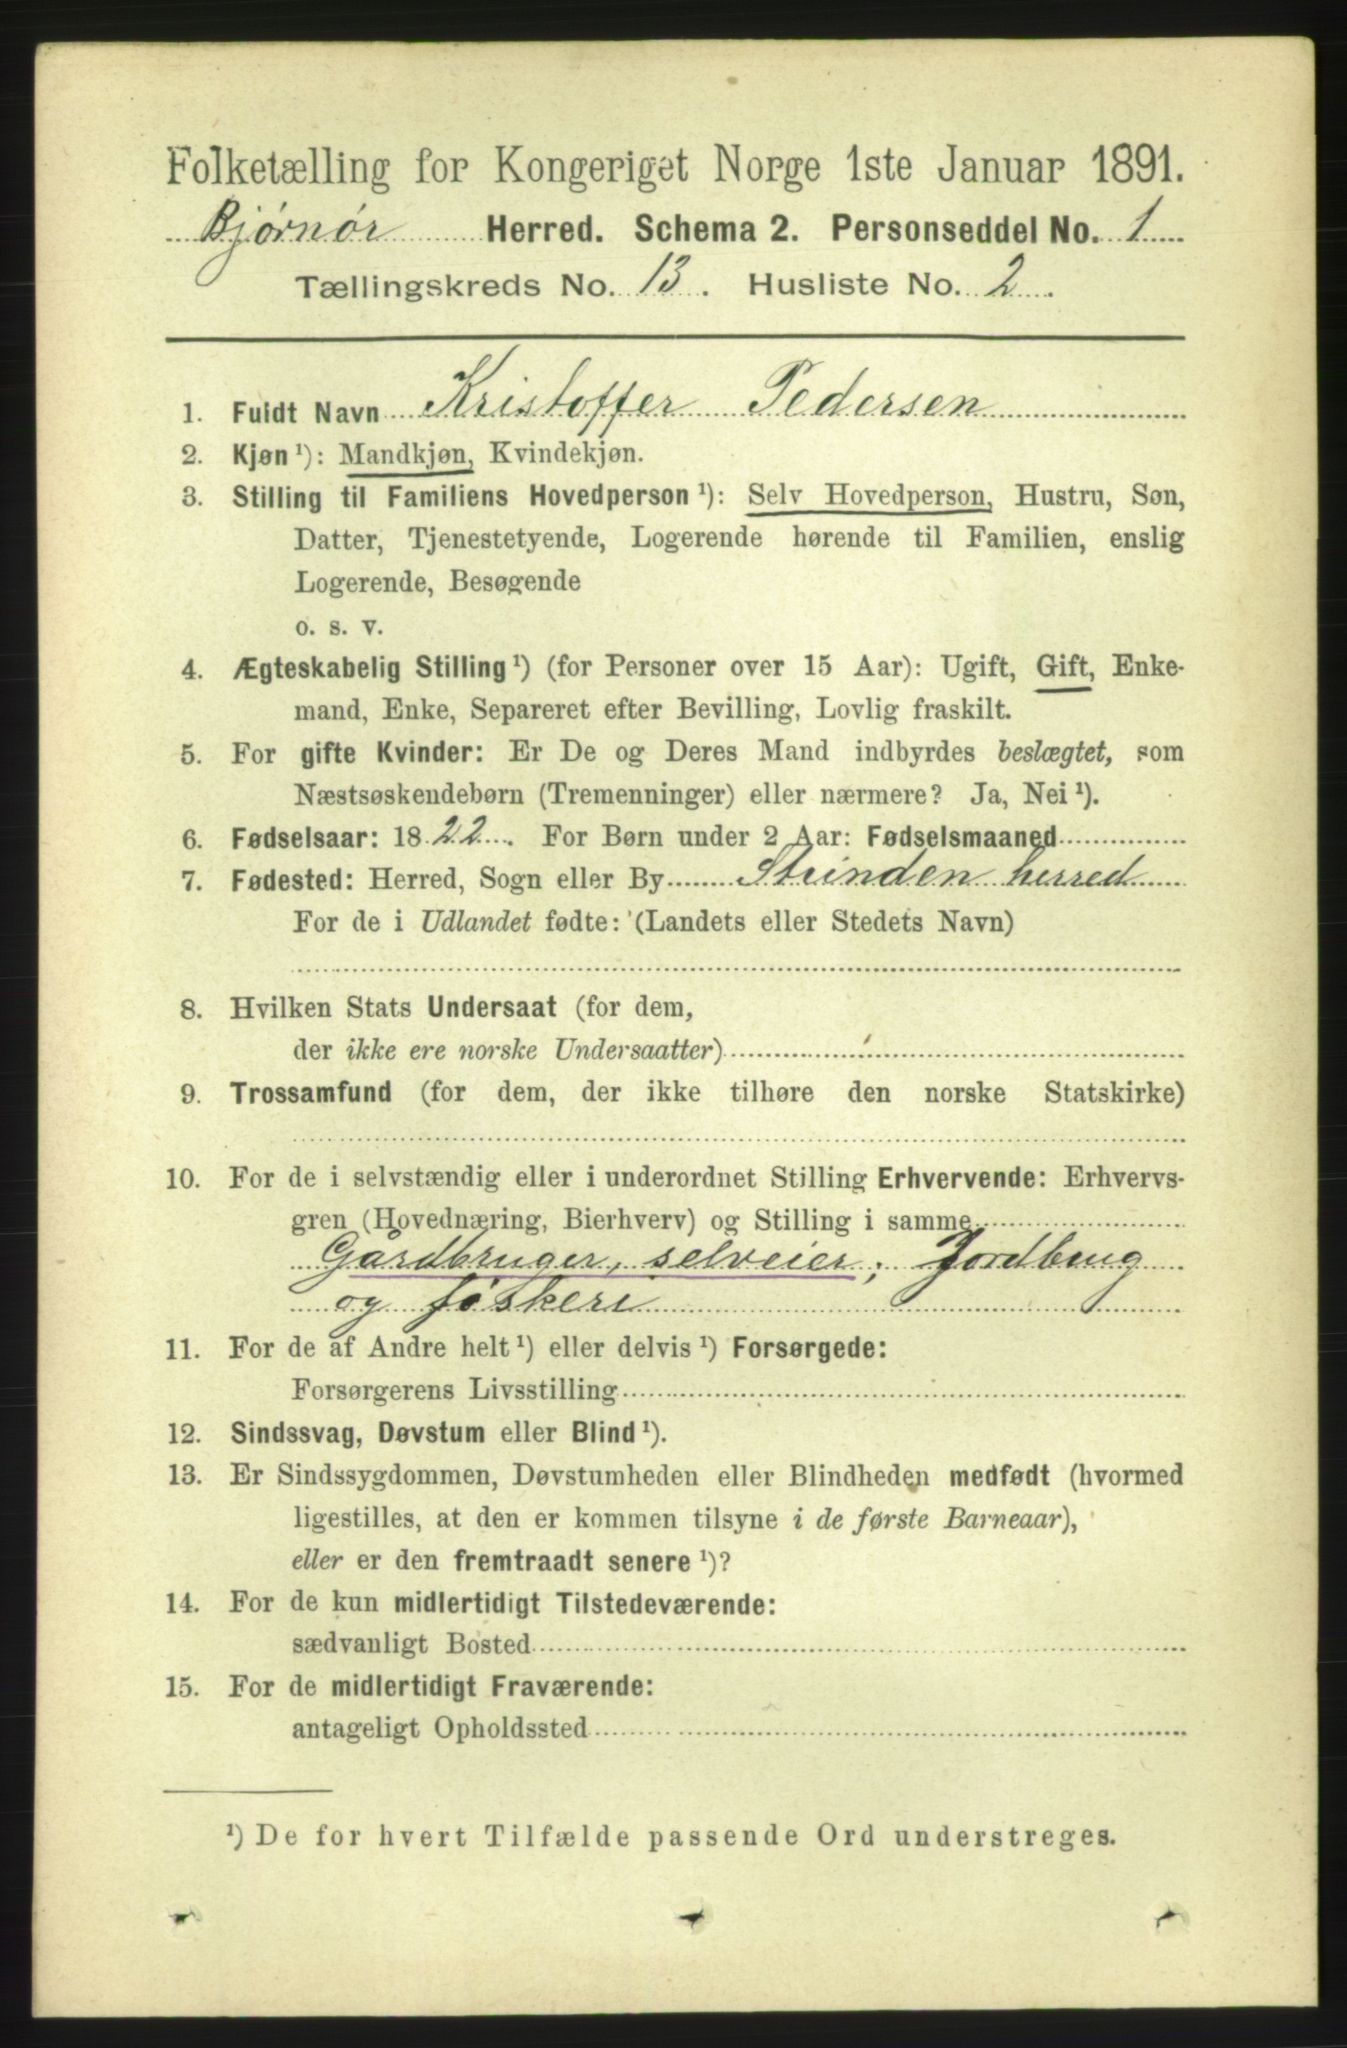 Folketælling for Kongeriget Norge 1ste Januar 1891.
Bjørnør Herred. Schema 2. Personseddel No. 1
Tællingskreds No. 13. Husliste No. 2.
1. Fuldt Navn Kristoffer Pedersen
2. Kjøn¹): Mandkjøn, Kvindekjøn.
3. Stilling til Familiens Hovedperson¹): Selv Hovedperson, Hustru, Søn,
Datter, Tjenestetyende, Logerende hørende til Familien, enslig
Logerende, Besøgende
o. s. v.
4. Ægteskabelig Stilling¹) (for Personer over 15 Aar): Ugift, Gift, Enke-
mand, Enke, Separeret efter Bevilling, Lovlig fraskilt.
5. For gifte Kvinder: Er De og Deres Mand indbyrdes beslægtet, som
Næstsøskendebørn (Tremenninger) eller nærmere? Ja, Nei¹).
6. Fødselsaar: 1822. For Børn under 2 Aar: Fødselsmaaned
7. Fødested: Herred, Sogn eller By Strinden herred
For de i Udlandet fødte: (Landets eller Stedets Navn)
8. Hvilken Stats Undersaat (for dem,
der ikke ere norske Undersaatter)
9. Trossamfund (for dem, der ikke tilhøre den norske Statskirke)
10. For de i selvstændig eller i underordnet Stilling Erhvervende: Erhvervs-
gren (Hovednæring, Bierhverv) og Stilling i samme
Gårdbruger, selveier; Jordbrug
og fiskeri
11. For de af Andre helt¹) eller delvis¹) Forsørgede:
Forsørgerens Livsstilling
12. Sindssvag, Døvstum eller Blind¹).
13. Er Sindssygdommen, Døvstumheden eller Blindheden medfødt (hvormed
ligestilles, at den er kommen tilsyne i de første Barneaar),
eller er den fremtraadt senere¹)?
14. For de kun midlertidigt Tilstedeværende:
sædvanligt Bosted
15. For de midlertidigt Fraværende:
antageligt Opholdssted
¹) De for hvert Tilfælde passende Ord understreges.